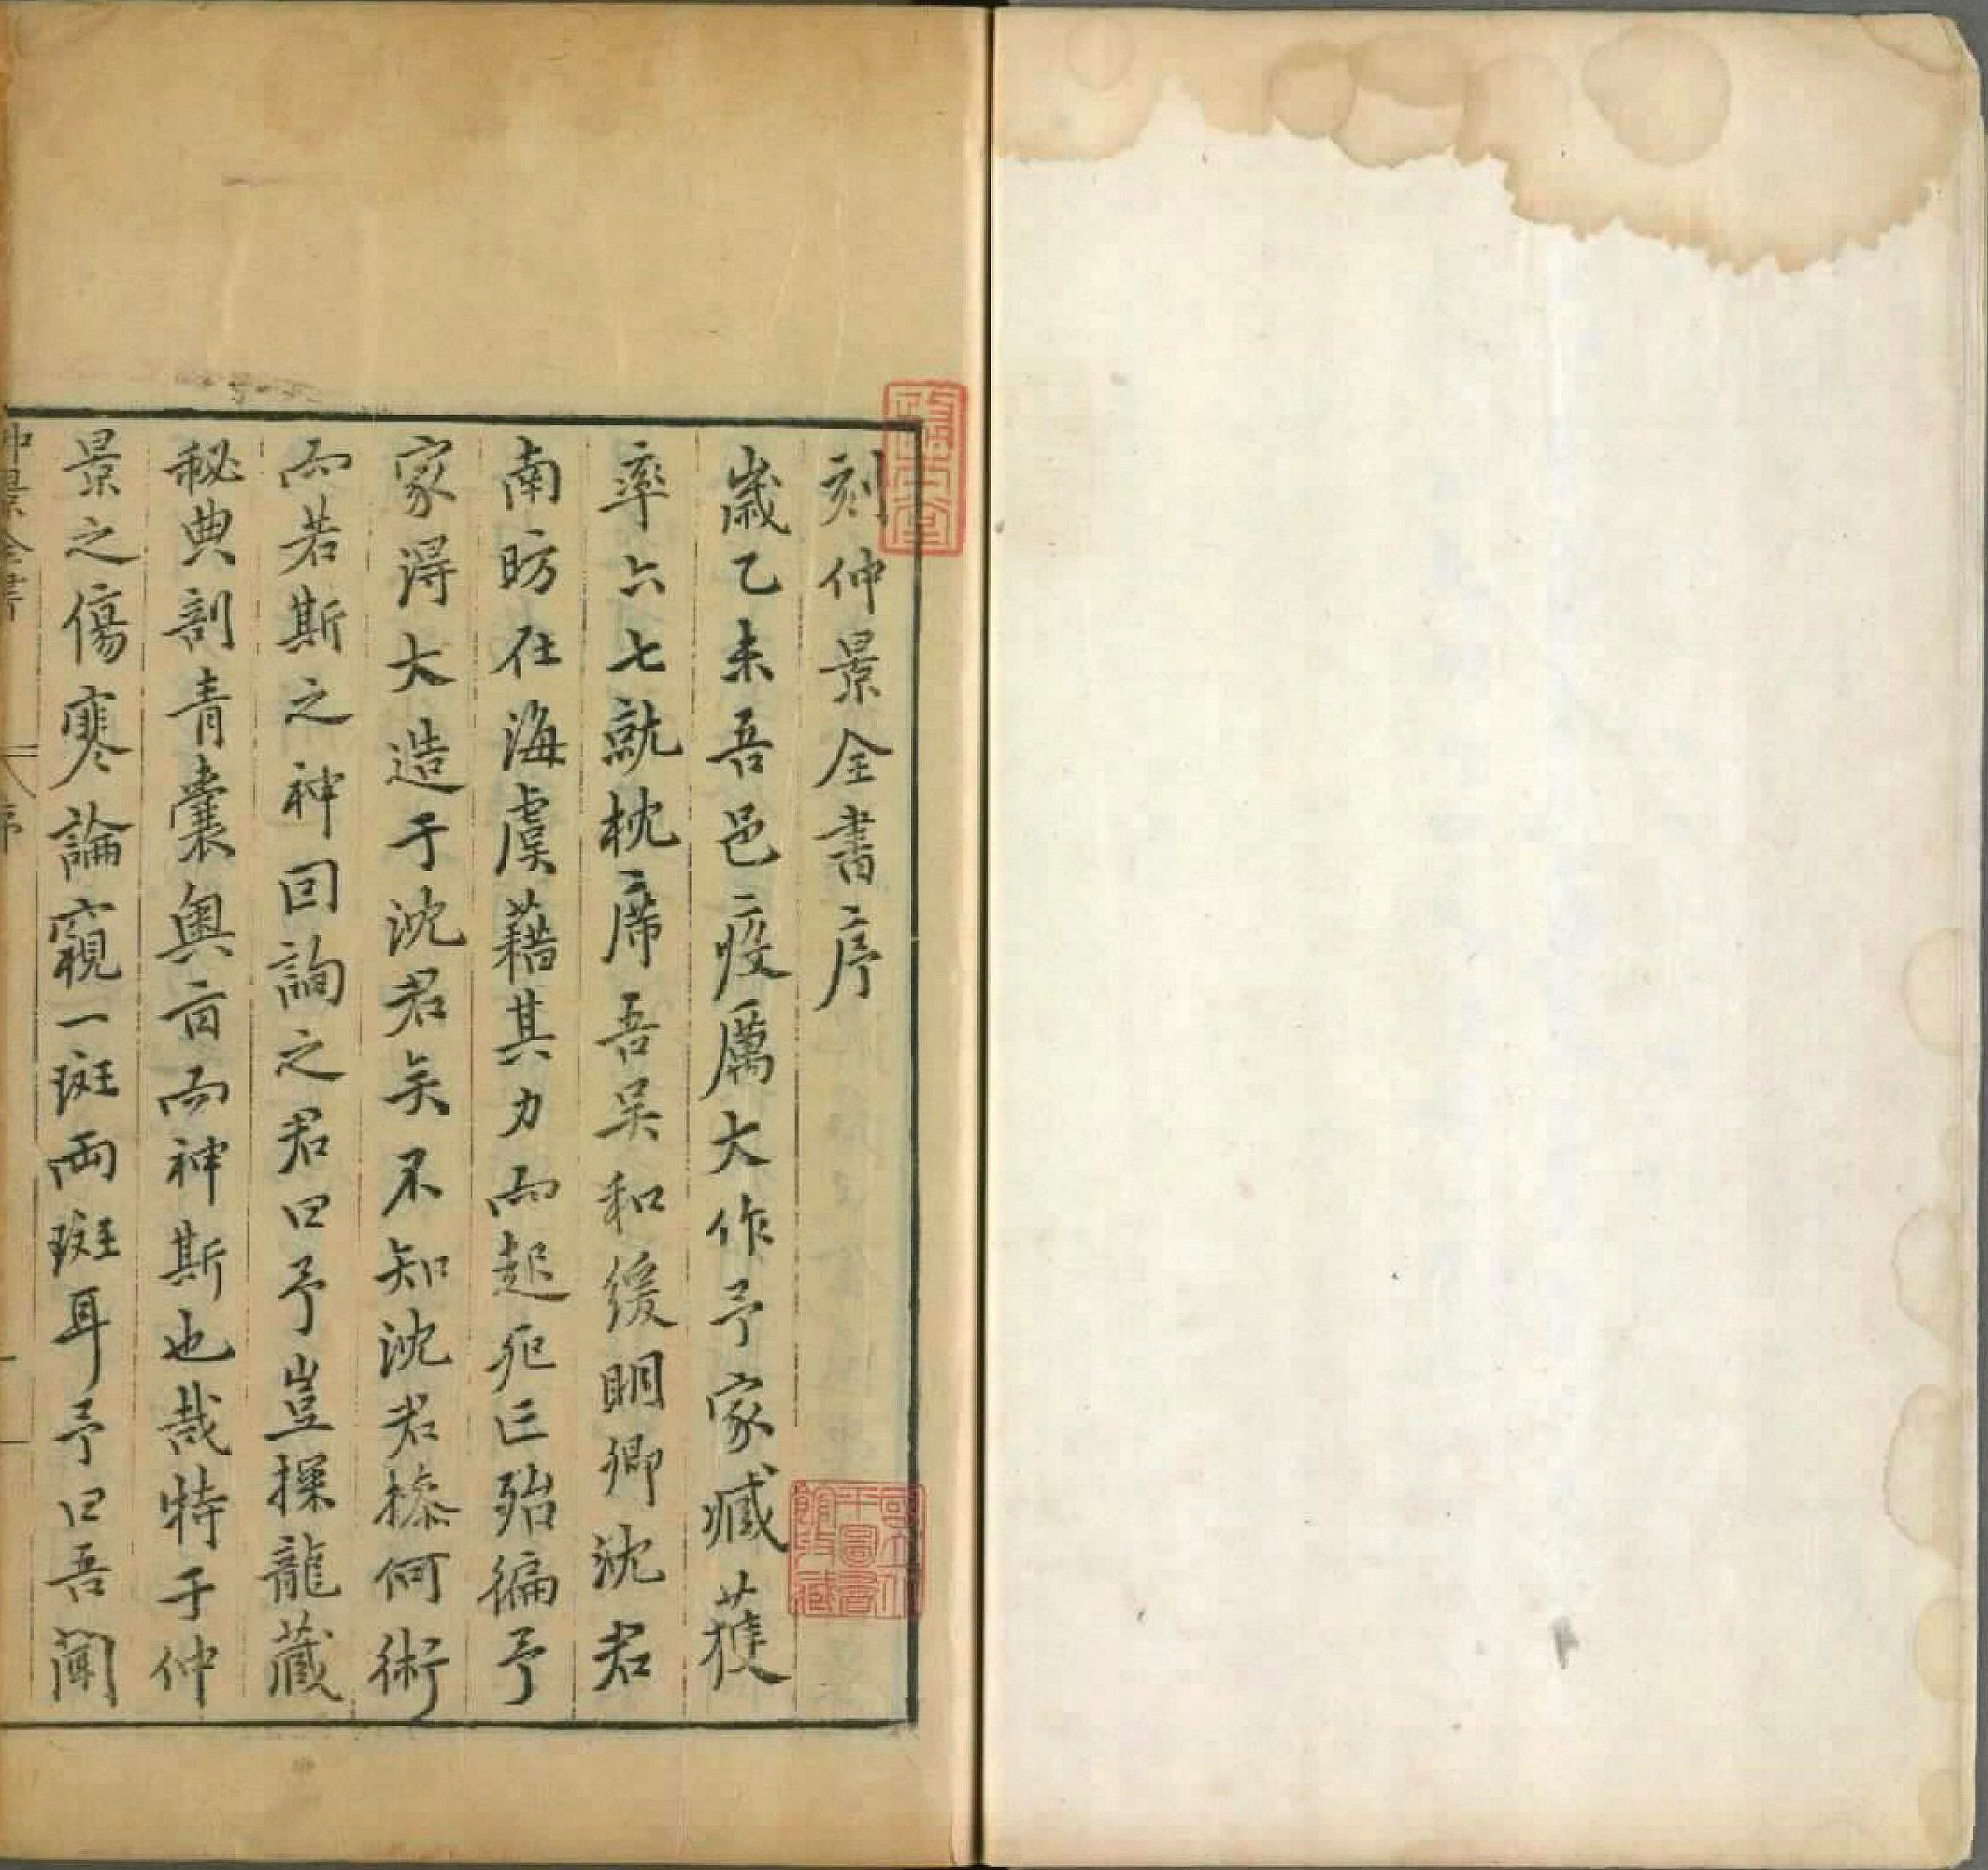 刻仲景全書序
歲乙未吾邑疫厲大作予家臧獲
率六七就枕席吾吴和緩明卿沈君
南昉在海虞藉其力而起死亡殆徧予
家淂大造于沈君矣不知沈君操何術
而若斯之神回詢之君曰予豈探龍藏
秘典剖青囊奧㫖而神斯也哉特于仲
景之傷寒論窺一斑兩斑耳予曰吾聞
仲景全書
序
一
國立北
平圖書
館收藏